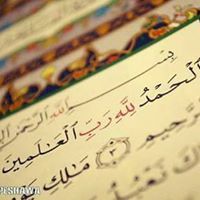 بِسْمِ اللهِ الرَّحْمَنِ
اَلْحَمْدُ لِلّٰهِ رَبِّ الْعَالَمِينَ
الرَّحِيمِ ٣ مَلِكِ
نَعْبُدُ
PESHAWA